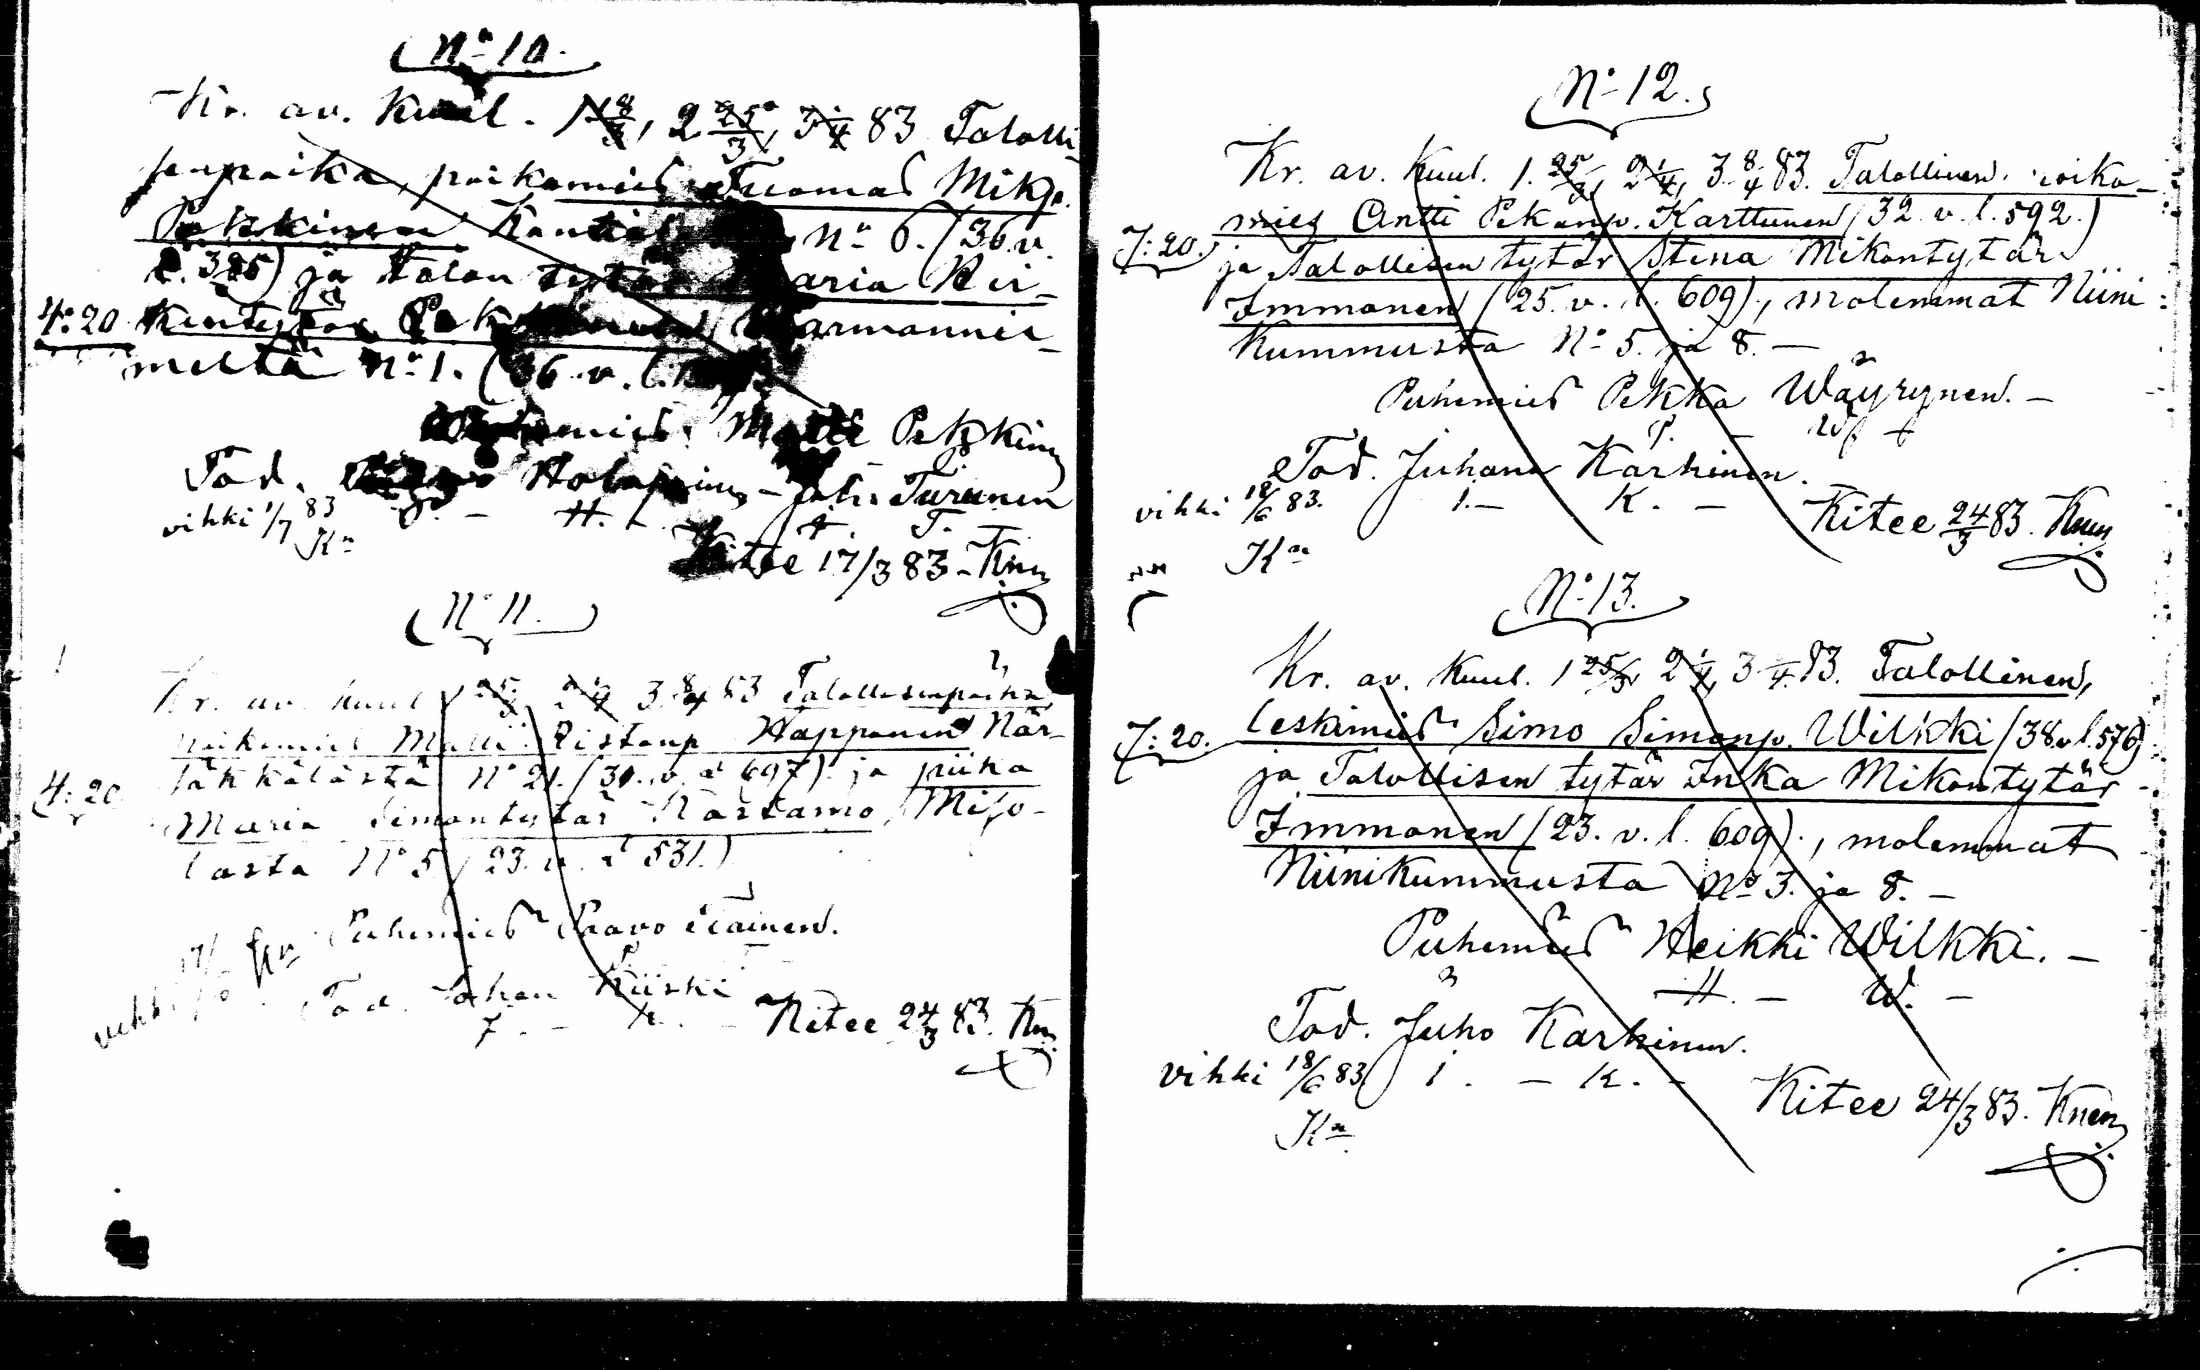 No 10.
Kr. av. kuul. 1 18/3, 2 25/3, 3 1/4 83 Talolli
senpoika, poikamies Tuomas Mikp.
Pekkinen No 6. (36 v.
l. 385) ja talon tytär Maria Kir-
4:20
meltä No 1. (36 v. l.
Puhemies Matti Pekkinen
Tod. Holopainen - Turunen
H. T.
vihki 1/7 83
Kn
Kitee 17/3 83 - Knen
No 11.
Kr. av. kuul 1 25/3 2 1/4 3 8/4 83 Talollisenpoika
poikamies Matti Ristonp Happonen När-
säkkälästä No 21. (30. v. l 697) ja piika
4:20
Maria Simontytär Närsamo, Miso-
lasta No 5 (23. v. l 531.)
Puhemies Paavo
P.
Tod. Johan Kiiski
J. - K. -
vihki
Kn
Kitee 24/3 83. Knen
No 12.
Kr. av. Kuul. 1. 25/3, 2 1/4, 3. 8/4 83. Talollinen. poika-
mies Antti Pekanp. Karttunen (32. v. l. 592.)
7:20.
ja Talollisen tytär Stina Mikontytär
Immonen (25. v. l. 609)., molemmat Niini:
kummusta No 5. ja 8. —
Puhemies Pekka Wäyrynen. -
P. - W. -
Tod. Juhana Karhinen.
I. - K. -
vihki 18/6 83.
Kn
Kitee 24/3 83. Knen
No 13.
Kr. av. Kuul. 1 25/3, 2 1/4, 3 /4. 83. Talollinen,
leskimies Simo Simonp. Wilkki (38. v. l. 576)
7:20.
ja Talollisen tytär Inka Mikontytär
Immonen (23. v. l. 609)., molemmat
Niinikummusta No 3. ja 8. -
Puhemies Heikki Wilkki. -
H. - W. -
Tod. Juho Karhinen.
I. - K. -
vihki 18/6 83
Kn
Kitee 24/3 83. Knen